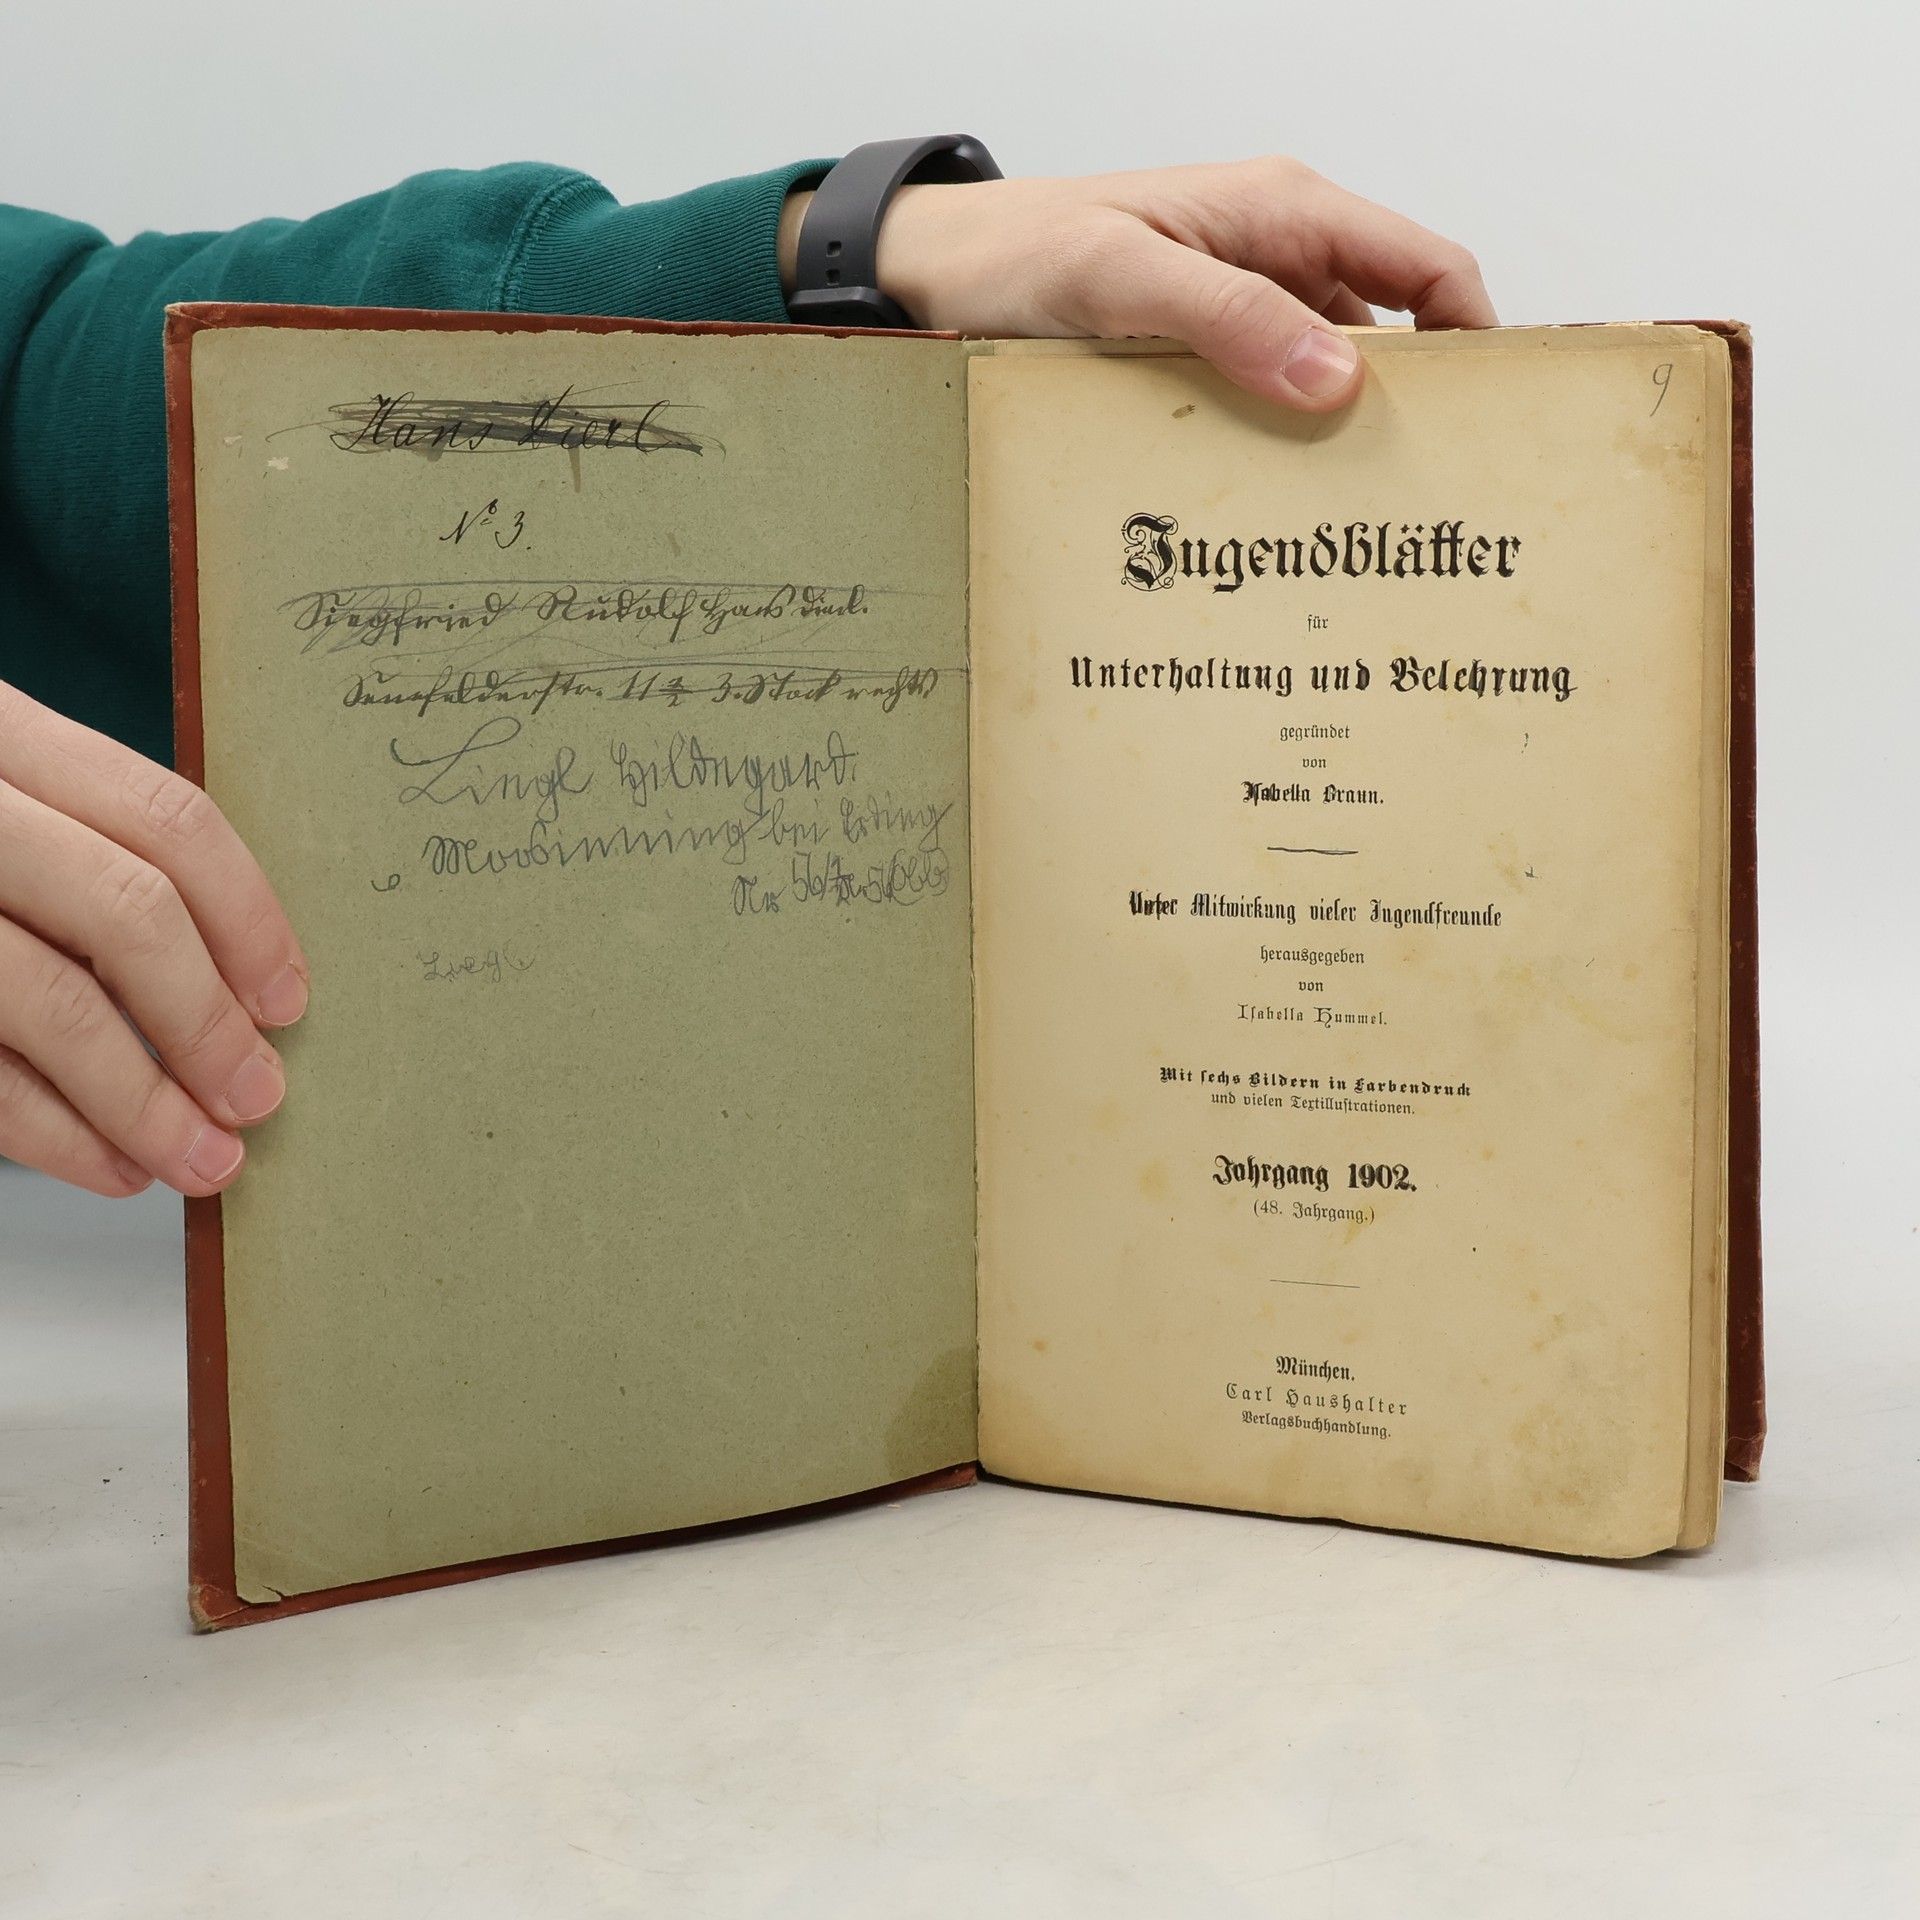 Hans Dierl
No 3.
Siegfried Rudolf Hans Dierl.
Senefelderstr. 11 3. Stock rechts
Liegl Hildegard.
Moosinning bei Erding
Nr 56
Liegl
9
Jugendblätter
für
Unterhaltung und Belehrung
gegründet
von
Isabella Braun.
Unter Mitwirkung vieler Jugendfreunde
herausgegeben
von
Isabella Hummel.
Mit sechs Bildern in Farbendruck
und vielen Textillustrationen.
Jahrgang 1902.
(48. Jahrgang.)
München.
Carl Haushalter
Verlagsbuchhandlung.